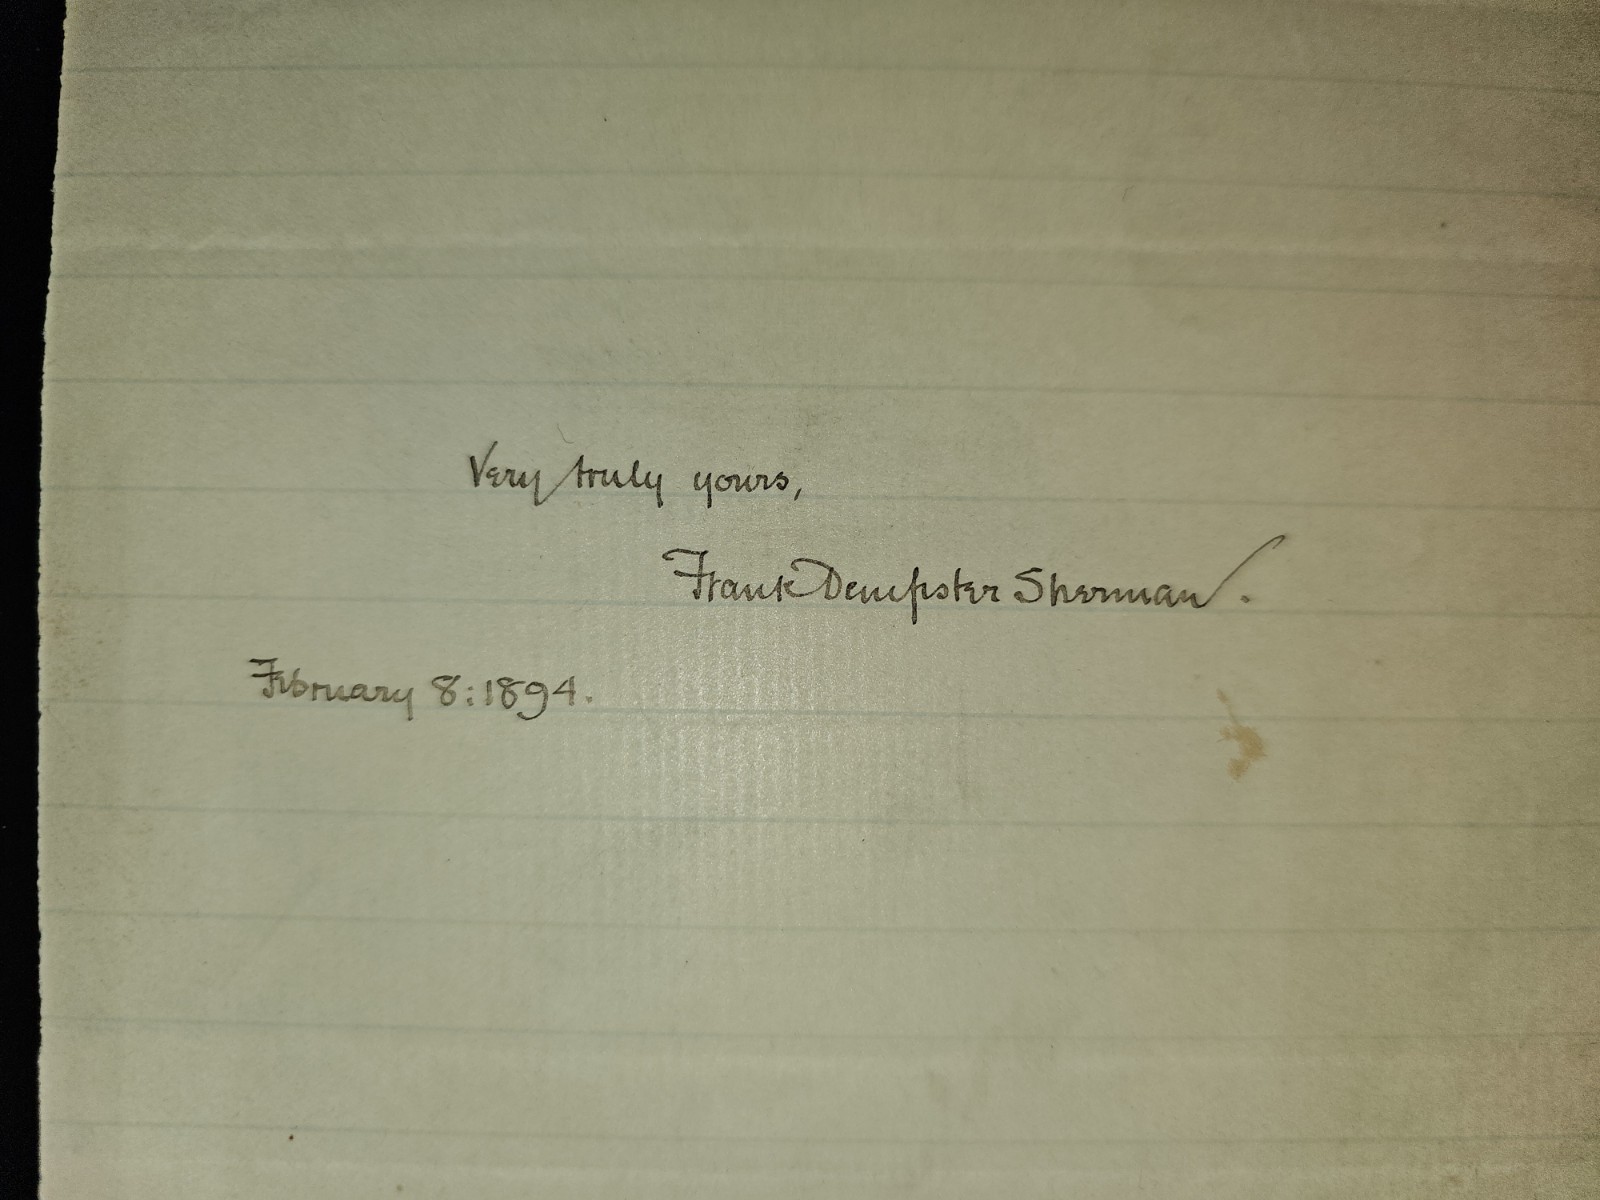 Very truly yours,
Frank Dempster Sherman.
February 8: 1894.